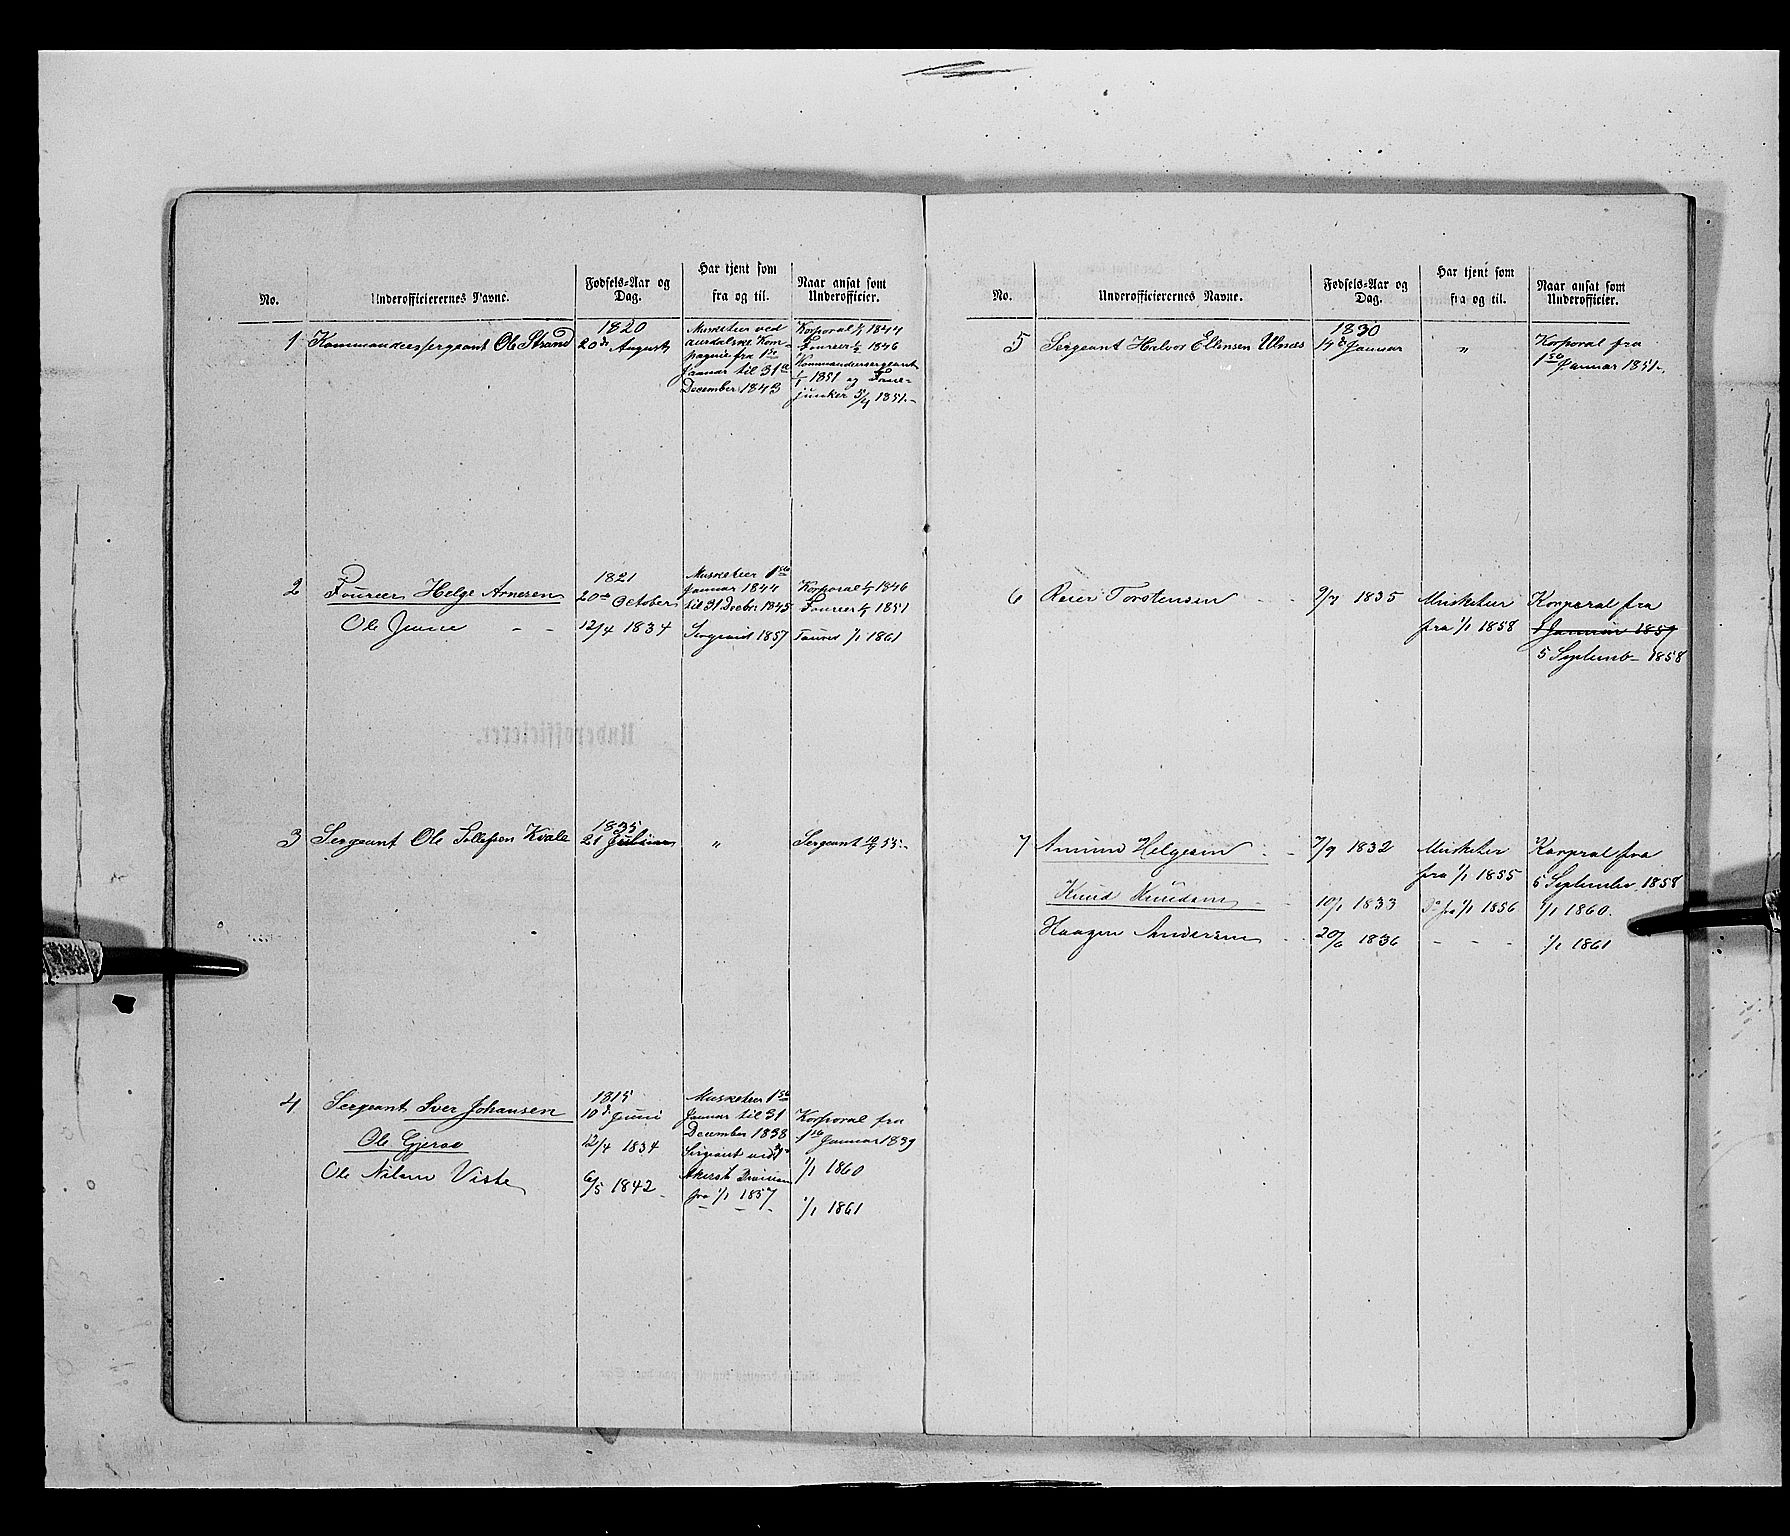 No.
Underofficierernes Navne.
Fødsels-Aar og Dag.
Har tjent som fra og til.
Naar ansat som Underofficier.
1
Kommandeersergeant Ole Strand
1820
20de August
Musketeer ved
aurdalske Kom-
pagnie fra 1ste
Januar til 31te
December 1843
Korporal 1/1 1844
Foureer 1/1 1846
Kommandeersergeant
1/1 1851 og Fane-
junker 5/4 1851.-
2
Foureer Helge Arnesen
1821
20de October
Musketeer 1ste
Januar 1844
til 31 Decbr 1845
Korporal 1/1 1846
Foureer 1/1 1851
Ole
12/4 1834
Sergeant 1857
Foureer 1/1 1861
3
Sergeant Ole Tollefsen Kvale
1835
21
"
Sergeant 55.-
4
Sergeant Iver Johansen
1815
10de Juni
Musketeer 1ste
Januar til 31
December 1838
Korporal fra
1ste Januar 1839
Ole Gjeraa
12/4 1834
Sergeant ved
Akersh Division
fra 1/1 1857
1/1 1860
Ole Nilsen Viste
6/5 1842
1/1 1861
No.
Underofficierernes Navne.
Fødsels-Aar og Dag.
Har tjent som fra og til.
Naar ansat som Underofficier.
5
Sergeant Halvor Ellensen Ulnæs
1830
14de Januar
"
Korporal fra
1ste Januar 1851.
6
Reier Torstensen
9/7 1835
Musketeer
fra 1/1 1858
Korporal fra
1 Januar 1859
5 Septemb 1858
7
Amund Helgesen
7/9 1832
Musketeer
fra 1/1 1855
Korporal fra
5 September 1858
Knud Knudsen
10/1 1833
Do fra 1/1 1856
1/1 1860.
Haagen Andersen
20/6 1836
- - -
1/1 1861